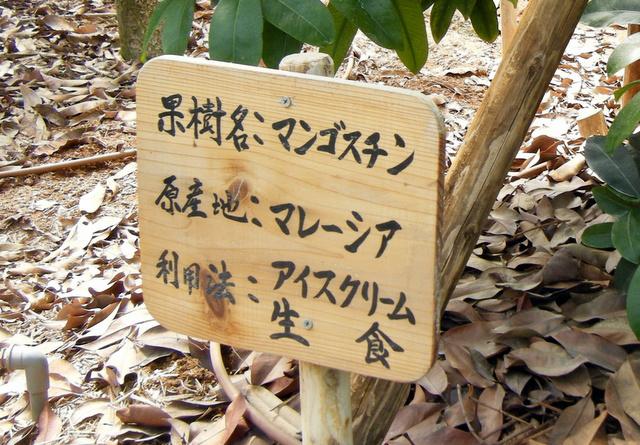 果樹名：マンゴスチン
原産地：マレーシア
利用法：アイスクリーム
生食